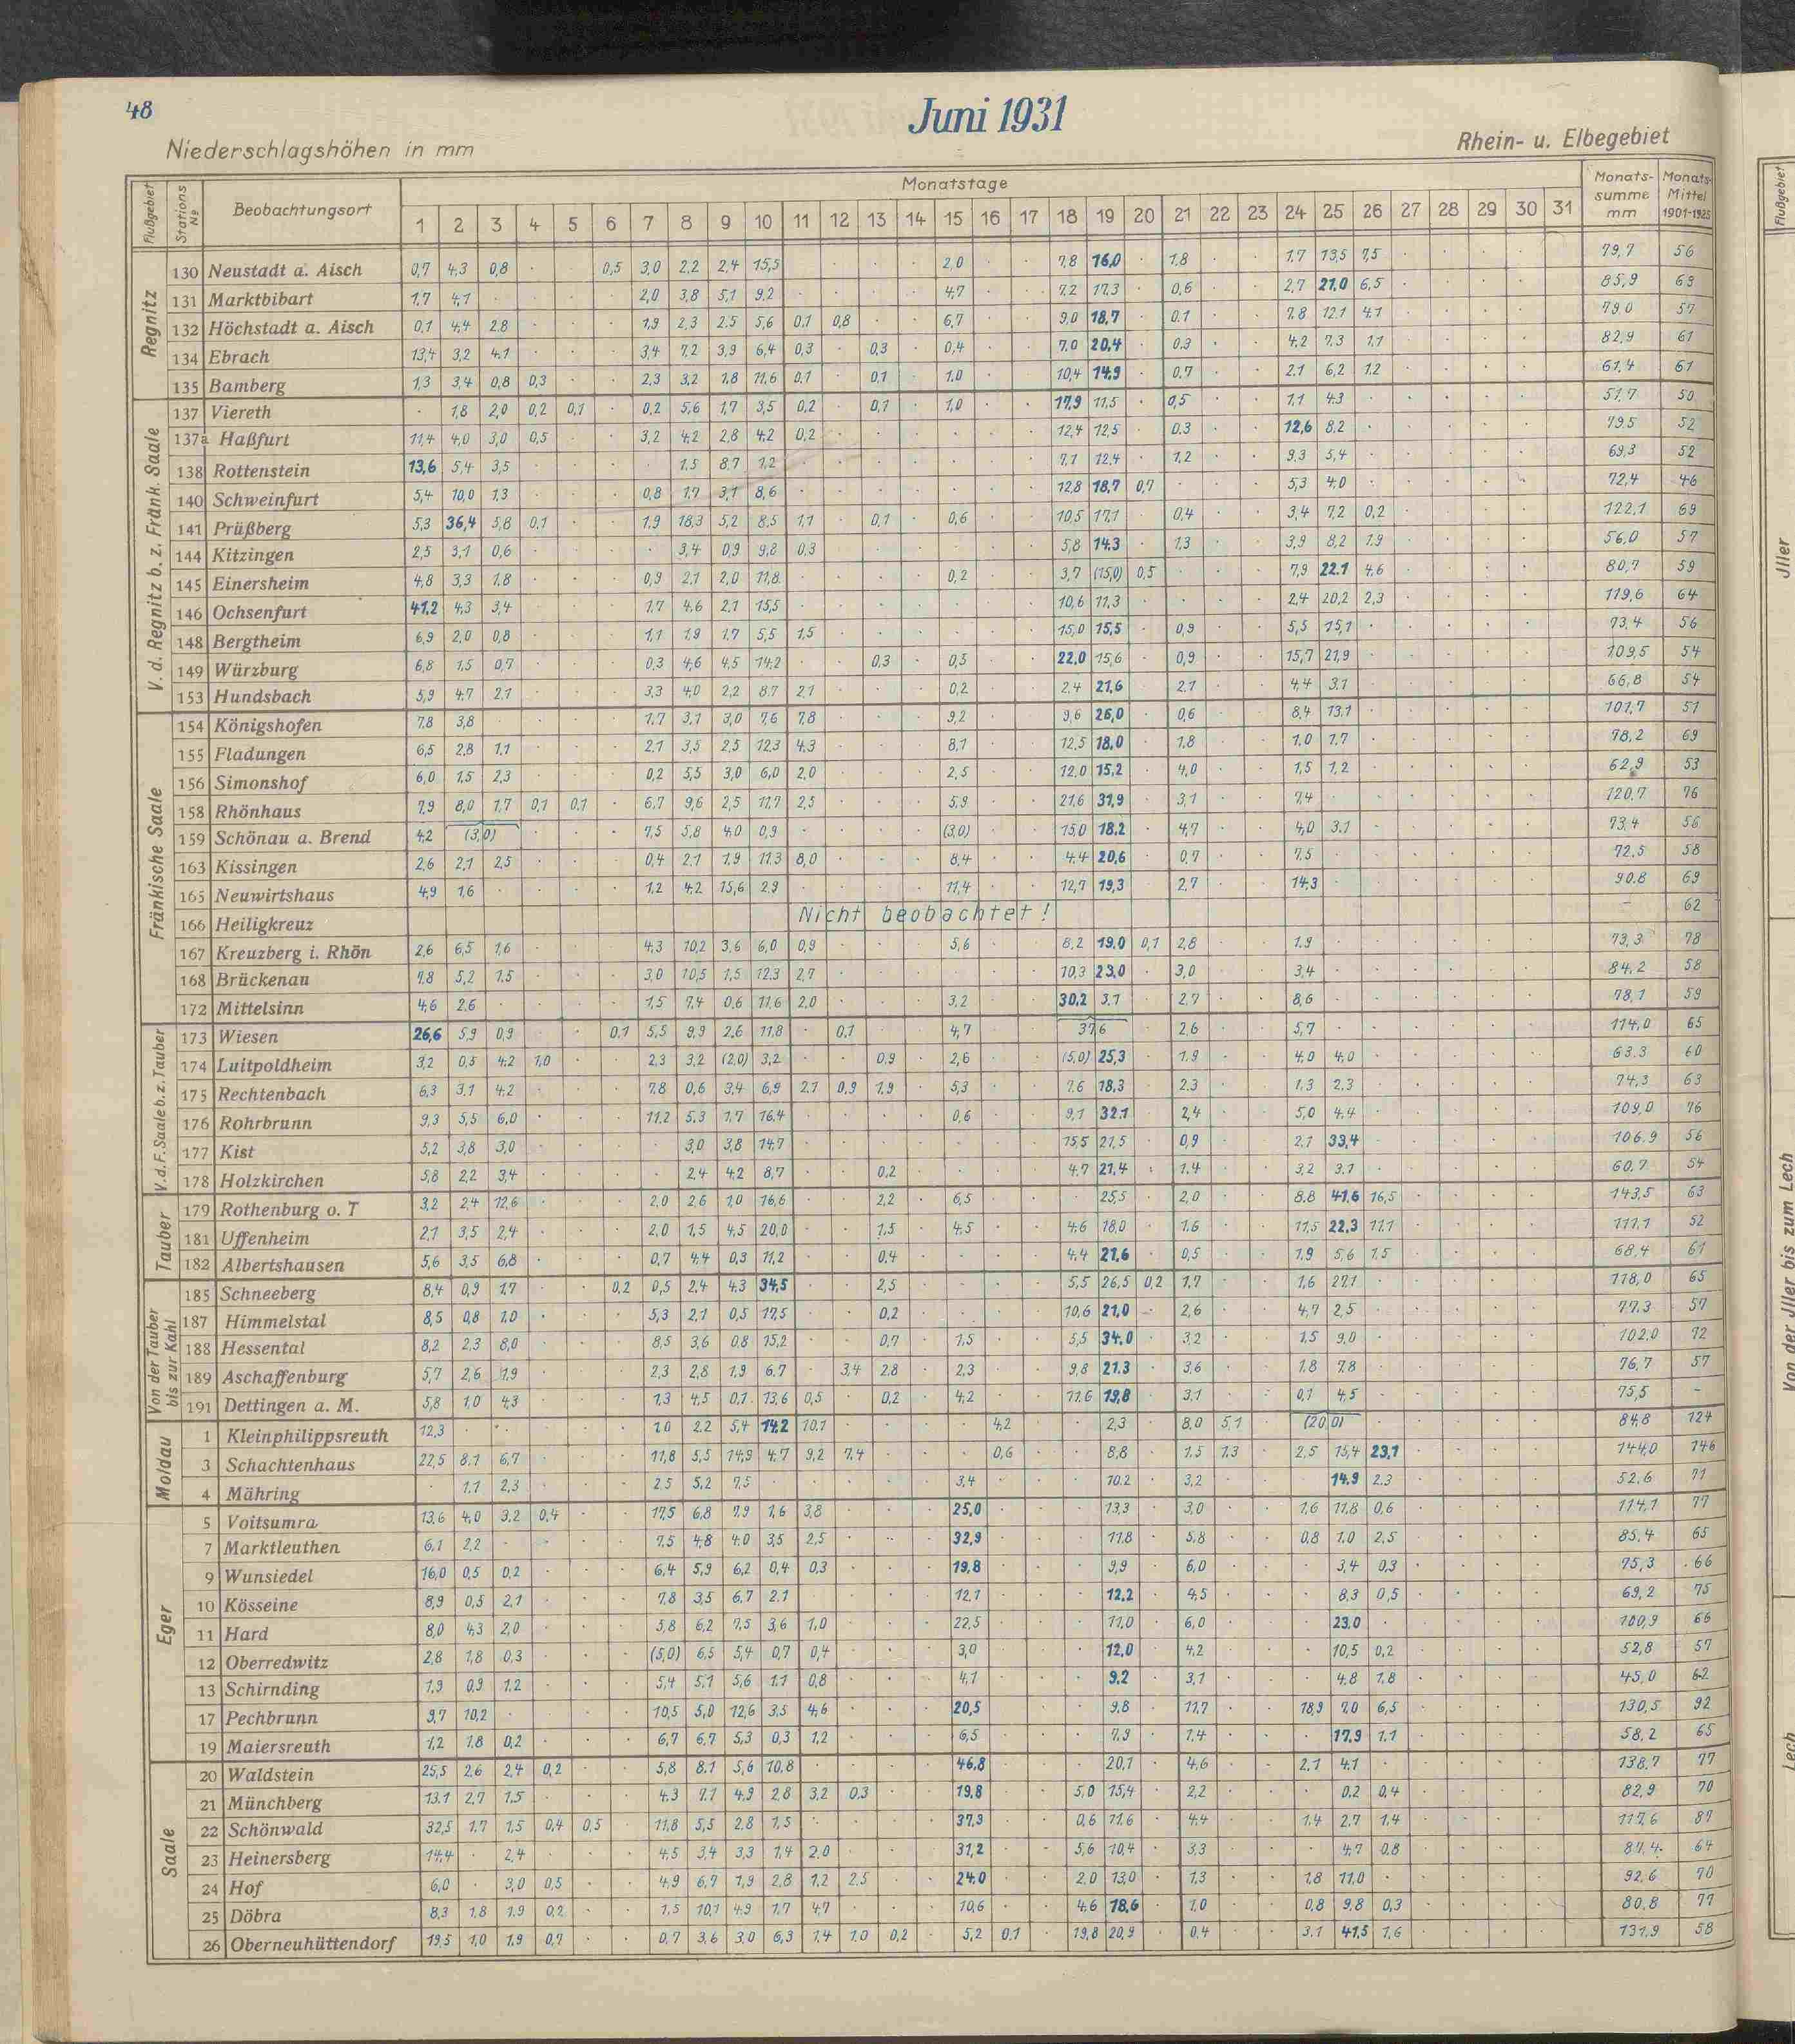 48
Juni 1931
Niederschlagshöhen in mm
Rhein- u. Elbegebiet
Flußgebiet Stations № Beobachtungsort Monatstage Monatssumme mm Monats-Mittel 1901-1925
1 2 3 4 5 6 7 8 9 10 11 12 13 14 15 16 17 18 19 20 21 22 23 24 25 26 27 28 29 30 31
Regnitz
130 Neustadt a. Aisch 0,7 4,3 0,8 · · 0,5 3,0 2,2 2,4 15,5 · · · · 2,0 · · 7,8 16,0 · 1,8 · · 1,7 13,5 7,5 · · · · 79,7 56
131 Marktbibart 1,7 4,1 · · · · 2,0 3,8 5,1 9,2 · · · · 4,7 · · 7,2 17,3 · 0,6 · · 2,7 21,0 6,5 · · · · 85,9 63
132 Höchstadt a. Aisch 0,1 4,4 2,8 · · · 1,9 2,3 2,5 5,6 0,1 0,8 · · 6,7 · · 9,0 18,7 · 0,1 · · 7,8 12,1 4,1 · · · · 79,0 57
134 Ebrach 13,4 3,2 4,1 · · · 3,4 7,2 3,9 6,4 0,3 · 0,3 · 0,4 · · 7,0 20,4 · 0,3 · · 4,2 7,3 1,1 · · · · 82,9 61
135 Bamberg 1,3 3,4 0,8 0,3 · · 2,3 3,2 1,8 11,6 0,1 · 0,1 · 1,0 · · 10,4 14,9 · 0,7 · · 2,1 6,2 1,2 · · · · 61,4 61
V. d. Regnitz b. z. Fränk. Saale
137 Viereth · 1,8 2,0 0,2 0,1 · 0,2 5,6 1,7 3,5 0,2 · 0,1 · 1,0 · · 17,9 11,5 · 0,5 · · 1,1 4,3 · · · · · 51,7 50
137a Haßfurt 11,4 4,0 3,0 0,5 · · 3,2 4,2 2,8 4,2 0,2 · · · · · · 12,4 12,5 · 0,3 · · 12,6 8,2 · · · · · 79,5 52
138 Rottenstein 13,6 5,4 3,5 · · · · 1,5 8,7 1,2 · · · · · · · 7,1 12,4 · 1,2 · · 9,3 5,4 · · · · · 69,3 52
140 Schweinfurt 5,4 10,0 1,3 · · · 0,8 1,7 3,1 8,6 · · · · · · · 12,8 18,7 0,7 · · · 5,3 4,0 · · · · · 72,4 46
141 Prüßberg 5,3 36,4 5,8 0,1 · · 1,9 18,3 5,2 8,5 1,1 · 0,1 · 0,6 · · 10,5 17,1 · 0,4 · · 3,4 7,2 0,2 · · · · 122,1 69
144 Kitzingen 2,5 3,1 0,6 · · · · 3,4 0,9 9,8 0,3 · · · · · · 5,8 14,3 · 1,3 · · 3,9 8,2 1,9 · · · · 56,0 57
145 Einersheim 4,8 3,3 1,8 · · · 0,9 2,1 2,0 11,8 · · · · 0,2 · · 3,7 (15,0) 0,5 · · · 7,9 22,1 4,6 · · · · 80,7 59
146 Ochsenfurt 41,2 4,3 3,4 · · · 1,7 4,6 2,1 15,5 · · · · · · · 10,6 11,3 · · · · 2,4 20,2 2,3 · · · · 119,6 64
148 Bergtheim 6,9 2,0 0,8 · · · 1,1 1,9 1,7 5,5 1,5 · · · · · · 15,0 15,5 · 0,9 · · 5,5 15,1 · · · · · 73,4 56
149 Würzburg 6,8 1,5 0,7 · · · 0,3 4,6 4,5 14,2 · · 0,3 · 0,5 · · 22,0 15,6 · 0,9 · · 15,7 21,9 · · · · · 109,5 54
153 Hundsbach 5,9 4,7 2,1 · · · 3,3 4,0 2,2 8,7 2,1 · · · 0,2 · · 2,4 21,6 · 2,1 · · 4,4 3,1 · · · · · 66,8 54
Fränkische Saale
154 Königshofen 7,8 3,8 · · · · 1,7 3,1 3,0 7,6 7,8 · · · 9,2 · · 9,6 26,0 · 0,6 · · 8,4 13,1 · · · · · 101,7 51
155 Fladungen 6,5 2,8 1,1 · · · 2,1 3,5 2,5 12,3 4,3 · · · 8,1 · · 12,5 18,0 · 1,8 · · 1,0 1,7 · · · · · 78,2 69
156 Simonshof 6,0 1,5 2,3 · · · 0,2 5,5 3,0 6,0 2,0 · · · 2,5 · · 12,0 15,2 · 4,0 · · 1,5 1,2 · · · · · 62,9 53
158 Rhönhaus 7,9 8,0 1,7 0,1 0,1 · 6,7 9,6 2,5 11,7 2,5 · · · 5,9 · · 21,6 31,9 · 3,1 · · 7,4 · · · · · · 120,7 76
159 Schönau a. Brend 4,2 (3,0) · · · 7,5 5,8 4,0 0,9 · · · · (3,0) · · 15,0 18,2 · 4,7 · · 4,0 3,1 · · · · · 73,4 56
163 Kissingen 2,6 2,1 2,5 · · · 0,4 2,1 1,9 11,3 8,0 · · · 8,4 · · 4,4 20,6 · 0,7 · · 7,5 · · · · · · 72,5 58
165 Neuwirtshaus 4,9 1,6 · · · · 1,2 4,2 15,6 2,9 · · · · 11,4 · · 12,7 19,3 · 2,7 · · 14,3 · · · · · · 90,8 69
166 Heiligkreuz Nicht beobachtet! – 62
167 Kreuzberg i. Rhön 2,6 6,5 1,6 · · · 4,3 10,2 3,6 6,0 0,9 · · · 5,6 · · 8,2 19,0 0,1 2,8 · · 1,9 · · · · · · 73,3 78
168 Brückenau 7,8 5,2 1,5 · · · 3,0 10,5 1,5 12,3 2,7 · · · · · · 10,3 23,0 · 3,0 · · 3,4 · · · · · · 84,2 58
172 Mittelsinn 4,6 2,6 · · · · 1,5 7,4 0,6 11,6 2,0 · · · 3,2 · · 30,2 3,1 · 2,7 · · 8,6 · · · · · · 78,1 59
V. d. F. Saale b. z. Tauber
173 Wiesen 26,6 5,9 0,9 · · 0,1 5,5 9,9 2,6 11,8 · 0,1 · · 4,7 · · 37,6 · 2,6 · · 5,7 · · · · · · 114,0 65
174 Luitpoldheim 3,2 0,5 4,2 1,0 · · 2,3 3,2 (2,0) 3,2 · · 0,9 · 2,6 · · (5,0) 25,3 · 1,9 · · 4,0 4,0 · · · · · 63,3 60
175 Rechtenbach 6,3 3,1 4,2 · · · 7,8 0,6 3,4 6,9 2,1 0,9 1,9 · 5,3 · · 7,6 18,3 · 2,3 · · 1,3 2,3 · · · · · 74,3 63
176 Rohrbrunn 9,3 5,5 6,0 · · · 11,2 5,3 1,7 16,4 · · · · 0,6 · · 9,1 32,1 · 2,4 · · 5,0 4,4 · · · · · 109,0 76
177 Kist 5,2 3,8 3,0 · · · · 3,0 3,8 14,7 · · · · · · · 15,5 21,5 · 0,9 · · 2,1 33,4 · · · · · 106,9 56
178 Holzkirchen 5,8 2,2 3,4 · · · · 2,4 4,2 8,7 · · 0,2 · · · · 4,7 21,4 · 1,4 · · 3,2 3,1 · · · · · 60,7 54
Tauber
179 Rothenburg o. T 3,2 2,4 12,6 · · · 2,0 2,6 1,0 16,6 · · 2,2 · 6,5 · · · 25,5 · 2,0 · · 8,8 41,6 16,5 · · · · 143,5 63
181 Uffenheim 2,1 3,5 2,4 · · · 2,0 1,5 4,5 20,0 · · 1,5 · 4,5 · · 4,6 18,0 · 1,6 · · 11,5 22,3 11,1 · · · · 111,1 52
182 Albertshausen 5,6 3,5 6,8 · · · 0,7 4,4 0,3 11,2 · · 0,4 · · · · 4,4 21,6 · 0,5 · · 1,9 5,6 1,5 · · · · 68,4 61
Von der Tauber bis zur Kahl
185 Schneeberg 8,4 0,9 1,7 · · 0,2 0,5 2,4 4,3 34,5 · · 2,5 · · · · 5,5 26,5 0,2 1,7 · · 1,6 27,1 · · · · · 118,0 65
187 Himmelstal 8,5 0,8 1,0 · · · 5,3 2,1 0,5 17,5 · · 0,2 · · · · 10,6 21,0 · 2,6 · · 4,7 2,5 · · · · · 77,3 57
188 Hessental 8,2 2,3 8,0 · · · 8,5 3,6 0,8 15,2 · · 0,7 · 1,5 · · 5,5 34,0 · 3,2 · · 1,5 9,0 · · · · · 102,0 72
189 Aschaffenburg 5,7 2,6 1,9 · · · 2,3 2,8 1,9 6,7 · 3,4 2,8 · 2,3 · · 9,8 21,3 · 3,6 · · 1,8 7,8 · · · · · 76,7 57
191 Dettingen a. M. 5,8 1,0 4,3 · · · 1,3 4,5 0,1 13,6 0,5 · 0,2 · 4,2 · · 11,6 19,8 · 3,1 · · 0,1 4,5 · · · · · 75,5 –
Moldau
1 Kleinphilippsreuth 12,3 · · · · · 1,0 2,2 5,4 14,2 10,1 · · · · 4,2 · · 2,3 · 8,0 5,1 · (20,0) · · · · · 84,8 124
3 Schachtenhaus 22,5 8,1 6,7 · · · 11,8 5,5 14,9 4,7 9,2 7,4 · · · 0,6 · · 8,8 · 1,5 1,3 · 2,5 15,4 23,1 · · · · 144,0 146
4 Mähring · 1,1 2,3 · · · 2,5 5,2 7,5 · · · · · 3,4 · · · 10,2 · 3,2 · · · 14,9 2,3 · · · · 52,6 71
Eger
5 Voitsumra 13,6 4,0 3,2 0,4 · · 17,5 6,8 7,9 1,6 3,8 · · · 25,0 · · · 13,3 · 3,0 · · 1,6 11,8 0,6 · · · · 114,1 77
7 Marktleuthen 6,1 2,2 · · · · 7,5 4,8 4,0 3,5 2,5 · · · 32,9 · · · 11,8 · 5,8 · · 0,8 1,0 2,5 · · · · 85,4 65
9 Wunsiedel 16,0 0,5 0,2 · · · 6,4 5,9 6,2 0,4 0,3 · · · 19,8 · · · 9,9 · 6,0 · · · 3,4 0,3 · · · · 75,3 66
10 Kösseine 8,9 0,5 2,1 · · · 7,8 3,5 6,7 2,1 · · · · 12,1 · · · 12,2 · 4,5 · · · 8,3 0,5 · · · · 69,2 75
11 Hard 8,0 4,3 2,0 · · · 5,8 6,2 7,5 3,6 1,0 · · · 22,5 · · · 11,0 · 6,0 · · · 23,0 · · · · · 100,9 66
12 Oberredwitz 2,8 1,8 0,3 · · · (5,0) 6,5 5,4 0,7 0,4 · · · 3,0 · · · 12,0 · 4,2 · · · 10,5 0,2 · · · · 52,8 57
13 Schirnding 1,9 0,9 1,2 · · · 5,4 5,1 5,6 1,1 0,8 · · · 4,1 · · · 9,2 · 3,1 · · · 4,8 1,8 · · · · 45,0 62
17 Pechbrunn 9,7 10,2 · · · · 10,5 5,0 12,6 3,5 4,6 · · · 20,5 · · · 9,8 · 11,7 · · 18,9 7,0 6,5 · · · · 130,5 92
19 Maiersreuth 1,2 1,8 0,2 · · · 6,7 6,7 5,3 0,3 1,2 · · · 6,5 · · · 7,9 · 1,4 · · · 17,9 1,1 · · · · 58,2 65
Saale
20 Waldstein 25,5 2,6 2,4 0,2 · · 5,8 8,1 5,6 10,8 · · · · 46,8 · · · 20,1 · 4,6 · · 2,1 4,1 · · · · · 138,7 77
21 Münchberg 13,1 2,7 1,5 · · · 4,3 7,1 4,9 2,8 3,2 0,3 · · 19,8 · · 5,0 15,4 · 2,2 · · · 0,2 0,4 · · · · 82,9 70
22 Schönwald 32,5 1,7 1,5 0,4 0,5 · 11,8 5,5 2,8 1,5 · · · · 37,3 · · 0,6 11,6 · 4,4 · · 1,4 2,7 1,4 · · · · 117,6 87
23 Heinersberg 14,4 · 2,4 · · · 4,5 3,4 3,3 1,4 2,0 · · · 31,2 · · 5,6 10,4 · 3,3 · · · 4,7 0,8 · · · · 87,4 64
24 Hof 6,0 · 3,0 0,5 · · 4,9 6,7 1,9 2,8 1,2 2,5 · · 24,0 · · 2,0 13,0 · 1,3 · · 1,8 11,0 · · · · · 92,6 70
25 Döbra 8,3 1,8 1,9 0,2 · · 1,5 10,1 4,9 1,7 4,7 · · · 10,6 · · 4,6 18,6 · 1,0 · · 0,8 9,8 0,3 · · · · 80,8 77
26 Oberneuhüttendorf 19,5 1,0 1,9 0,7 · · 0,7 3,6 3,0 6,3 1,4 1,0 0,2 · 5,2 0,1 · 19,8 20,9 · 0,4 · · 3,1 41,5 1,6 · · · · 131,9 58
Flußgebiet
Jller
Von der Jller bis zum Lech
Lech